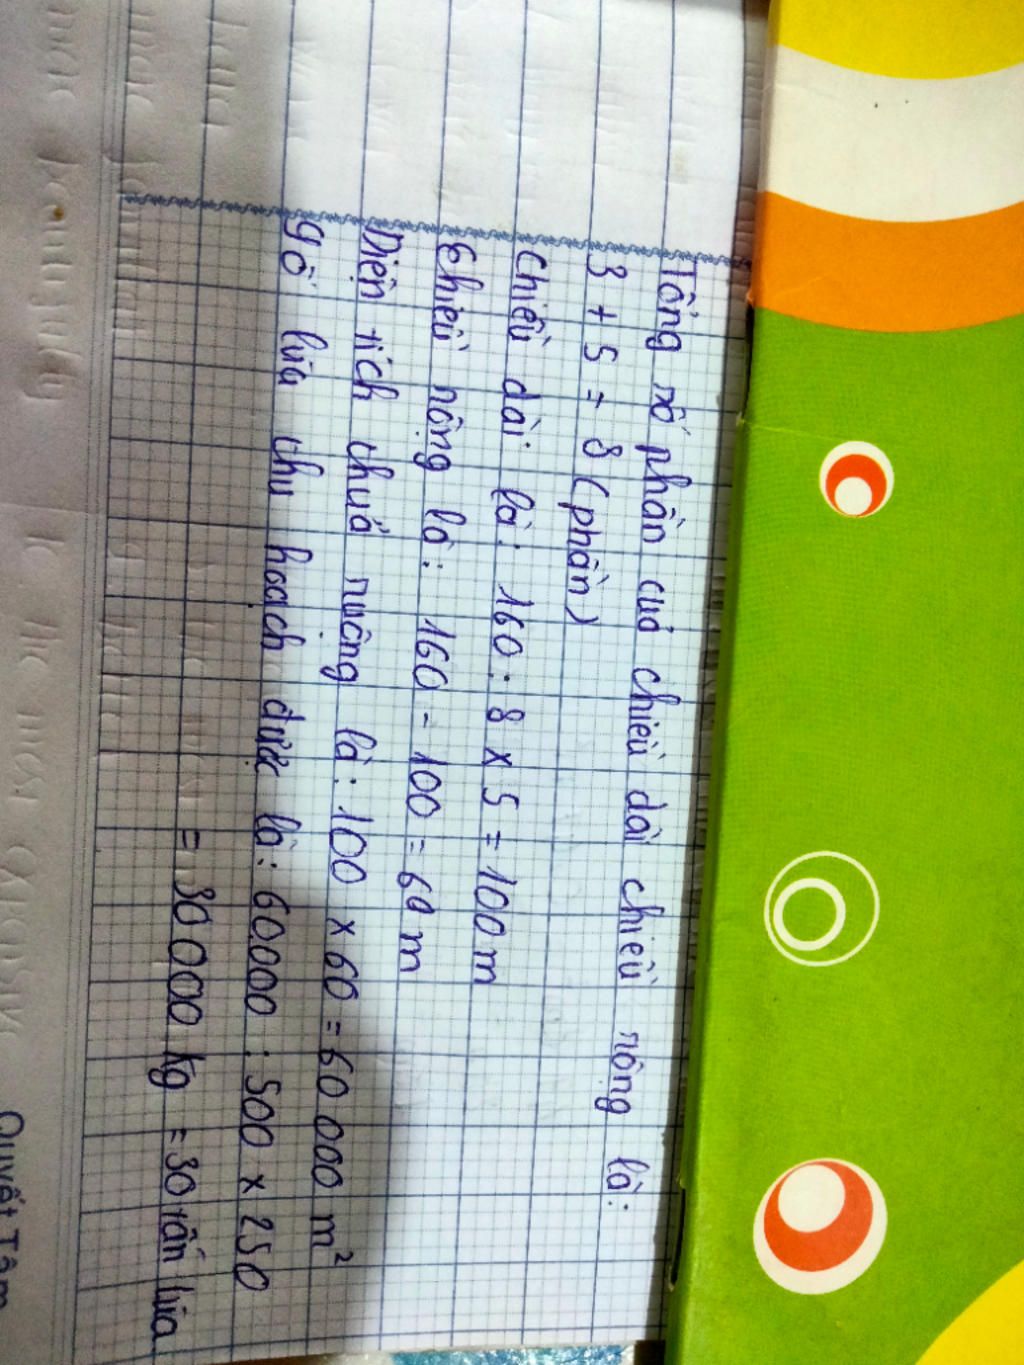 Tổng số phần của chiều dài chiều rộng là:
3 + 5 = 8 (phần)
Chiều dài là: 160 : 8 x 5 = 100 m
Chiều rộng là: 160 - 100 = 60 m
Diện tích thuả ruộng là: 100 x 60 = 60 000 m²
Số lúa thu hoạch được là: 60000 : 500 x 250
= 30 000 kg = 30 tấn lúa
Quyết Tâm